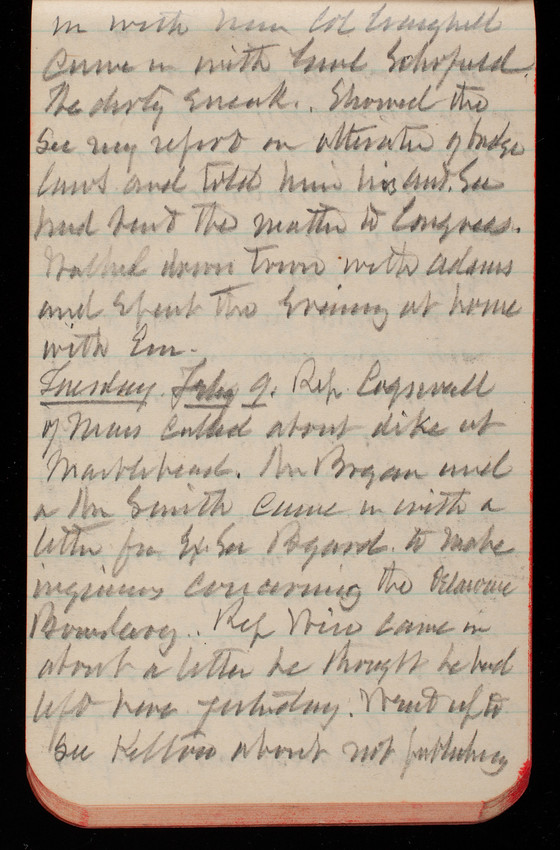 in with him Col Craighill
came in with Genl Schofield.
The dirty sneak. Showed the
Sec my report on alteration of bridge
laws and told him his and. Sec
had sent the matter to Congress.
Walked down town with Adams
and Spent the Evening at home
with Em.
Tuesday. Feby 9. Rep Cogswell
of Mass called about dike at
Marblehead. Mr Bogan and
a Mr Smith came in with a
letter fr Ex. Sec Bayard. to make
inquiries concerning the Delaware
Boundary. Rep Wise came in
about a letter he thought he had
left here yesterday. Went up to
see Kellow about not publishing